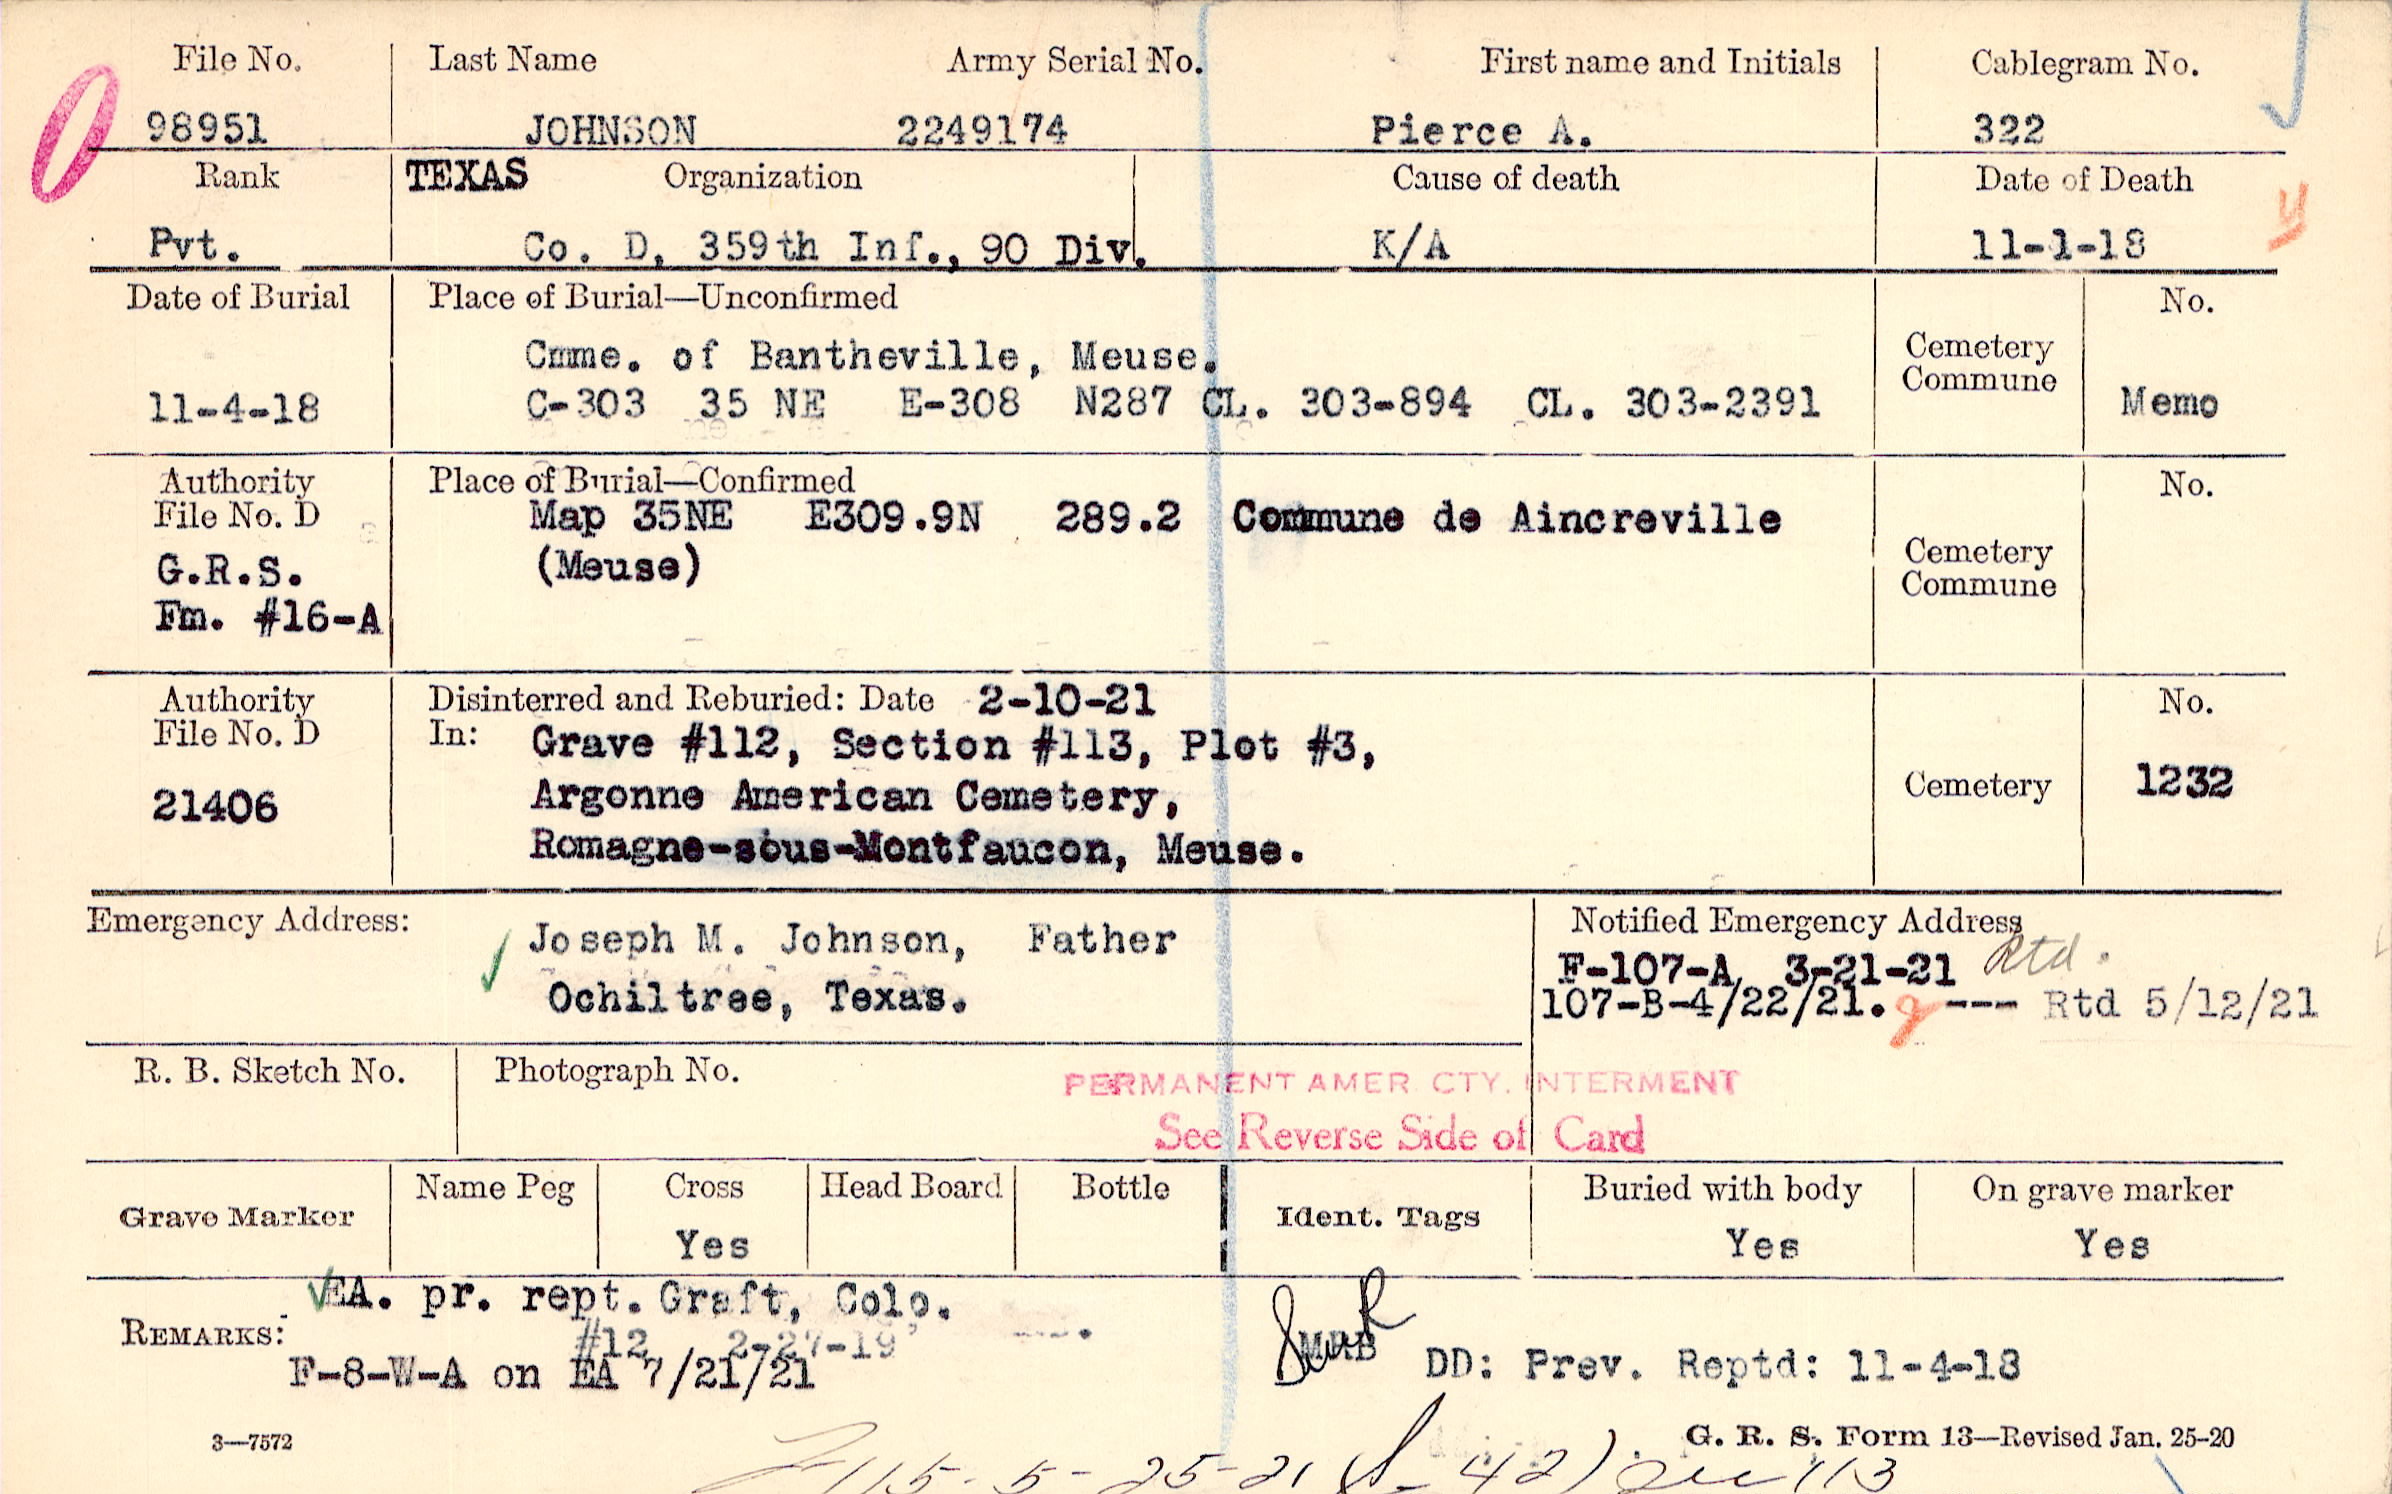 File No. Last Name Army Serial No. First name and Initials Cablegram No.
98951 JOHNSON 2249174 Pierce A. 322
Rank TEXAS Organization Cause of death Date of Death
Pvt. Co. D, 359th Inf., 90 Div. K/A 11-1-18
Date of Burial Place of Burial—Unconfirmed No.
Cmme. of Bantheville, Meuse. Cemetery
Commune
11-4-18 C-303 35 NE E-308 N287 CL. 303-894 CL. 303-2391 Memo
Authority Place of Burial—Confirmed No.
File No. D Map 35NE E309.9N 289.2 Commune de Aincreville
G.R.S. (Meuse) Cemetery
Commune
Fm. #16-A
Authority Disinterred and Reburied: Date 2-10-21 No.
File No. D In: Grave #112, Section #113, Plot #3,
21406 Argonne American Cemetery, Cemetery 1232
Romagne-sous-Montfaucon, Meuse.
Emergency Address: Joseph M. Johnson, Father Notified Emergency Address
F-107-A 3-21-21 Rtd.
Ochiltree, Texas. 107-B-4/22/21. --- Rtd 5/12/21
R. B. Sketch No. Photograph No.
PERMANENT AMER. CTY. INTERMENT
See Reverse Side of Card
Grave Marker Name Peg Cross Head Board Bottle Ident. Tags Buried with body On grave marker
Yes Yes Yes
EA. pr. rept. Graft, Colo.
REMARKS: #12 2-27-19
F-8-W-A on EA 7/21/21 MRB DD: Prev. Reptd: 11-4-18
3—7572 G. R. S. Form 13—Revised Jan. 25-20
115-5-25-21